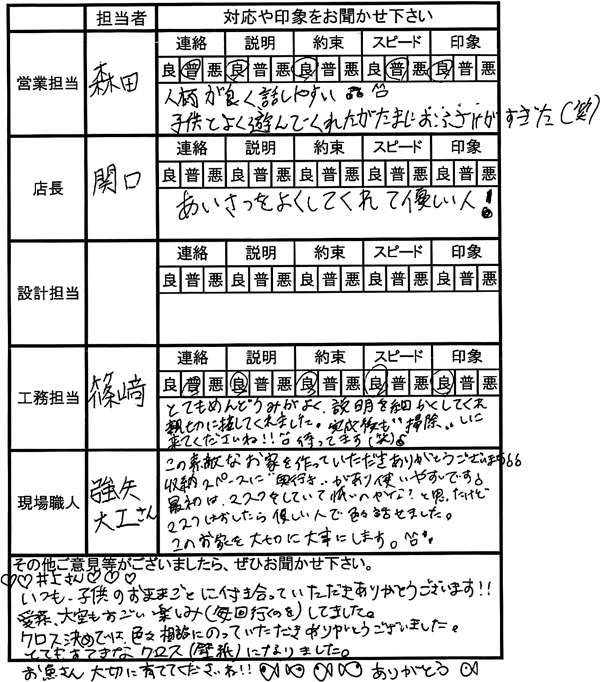 担当者 対応や印象をお聞かせ下さい
営業担当 森田 連絡 説明 約束 スピード 印象
良 普 悪 良 普 悪 良 普 悪 良 普 悪 良 普 悪
人柄が良く話しやすい
子供とよく遊んでくれたがたまにおふざけがすぎた(笑)
店長 関口 連絡 説明 約束 スピード 印象
良 普 悪 良 普 悪 良 普 悪 良 普 悪 良 普 悪
あいさつをよくしてくれて優しい人!
設計担当 連絡 説明 約束 スピード 印象
良 普 悪 良 普 悪 良 普 悪 良 普 悪 良 普 悪
工務担当 篠﨑 連絡 説明 約束 スピード 印象
良 普 悪 良 普 悪 良 普 悪 良 普 悪 良 普 悪
とてもめんどうみがよく、説明を細かくしてくれ
親切に接してくれました。完成後も"掃除"しに
来てくださいね!!待ってます(笑)
現場職人 強矢大工さん
この素敵なお家を作っていただきありがとうございます
収納スペースに"奥行き"があり使いやすいです
最初は、マスクをしていて怖いのかな?と思ったけど
マスクはずしたら優しい人で色々話せました。
このお家を大切に大事にします。
その他ご意見等がございましたら、ぜひお聞かせ下さい。
♡♡井上さん♡♡♡
いつも、子供のおままごとに付き合っていただきありがとうございます!!
愛菜、大空もすごい楽しみ(毎回行くのを)してました。
クロス決めでは、色々相談にのっていただきありがとうございました。
とてもすてきなクロス(壁紙)になりました。
お魚さん大切に育ててくださいね!! ありがとう